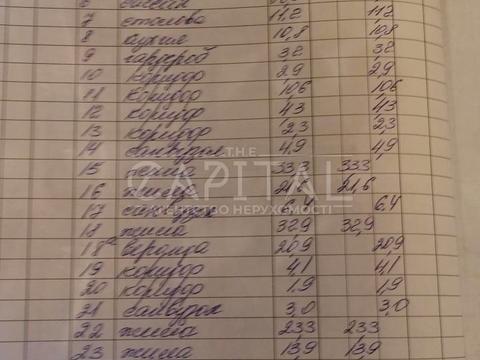 7 столова 11,2 11,2
8 кухня 10,8 10,8
9 гардероб 3,8 3,8
10 коридор 2,9 2,9
11 коридор 10,6 10,6
12 коридор 4,3 4,3
13 коридор 2,3 2,3
14 санвузол 4,9 4,9
15 жила 33,3 33,3
16 жила 21,6 21,6
17 санвузол 6,4 6,4
18 жила 32,9 32,9
18а веранда 20,9 20,9
19 коридор 4,1 4,1
20 коридор 1,9 1,9
21 санвузол 3,0 3,0
22 жила 23,3 23,3
23 жила 13,9 13,9
THE
CAPITAL
АГЕНТСТВО НЕРУХОМОСТІ